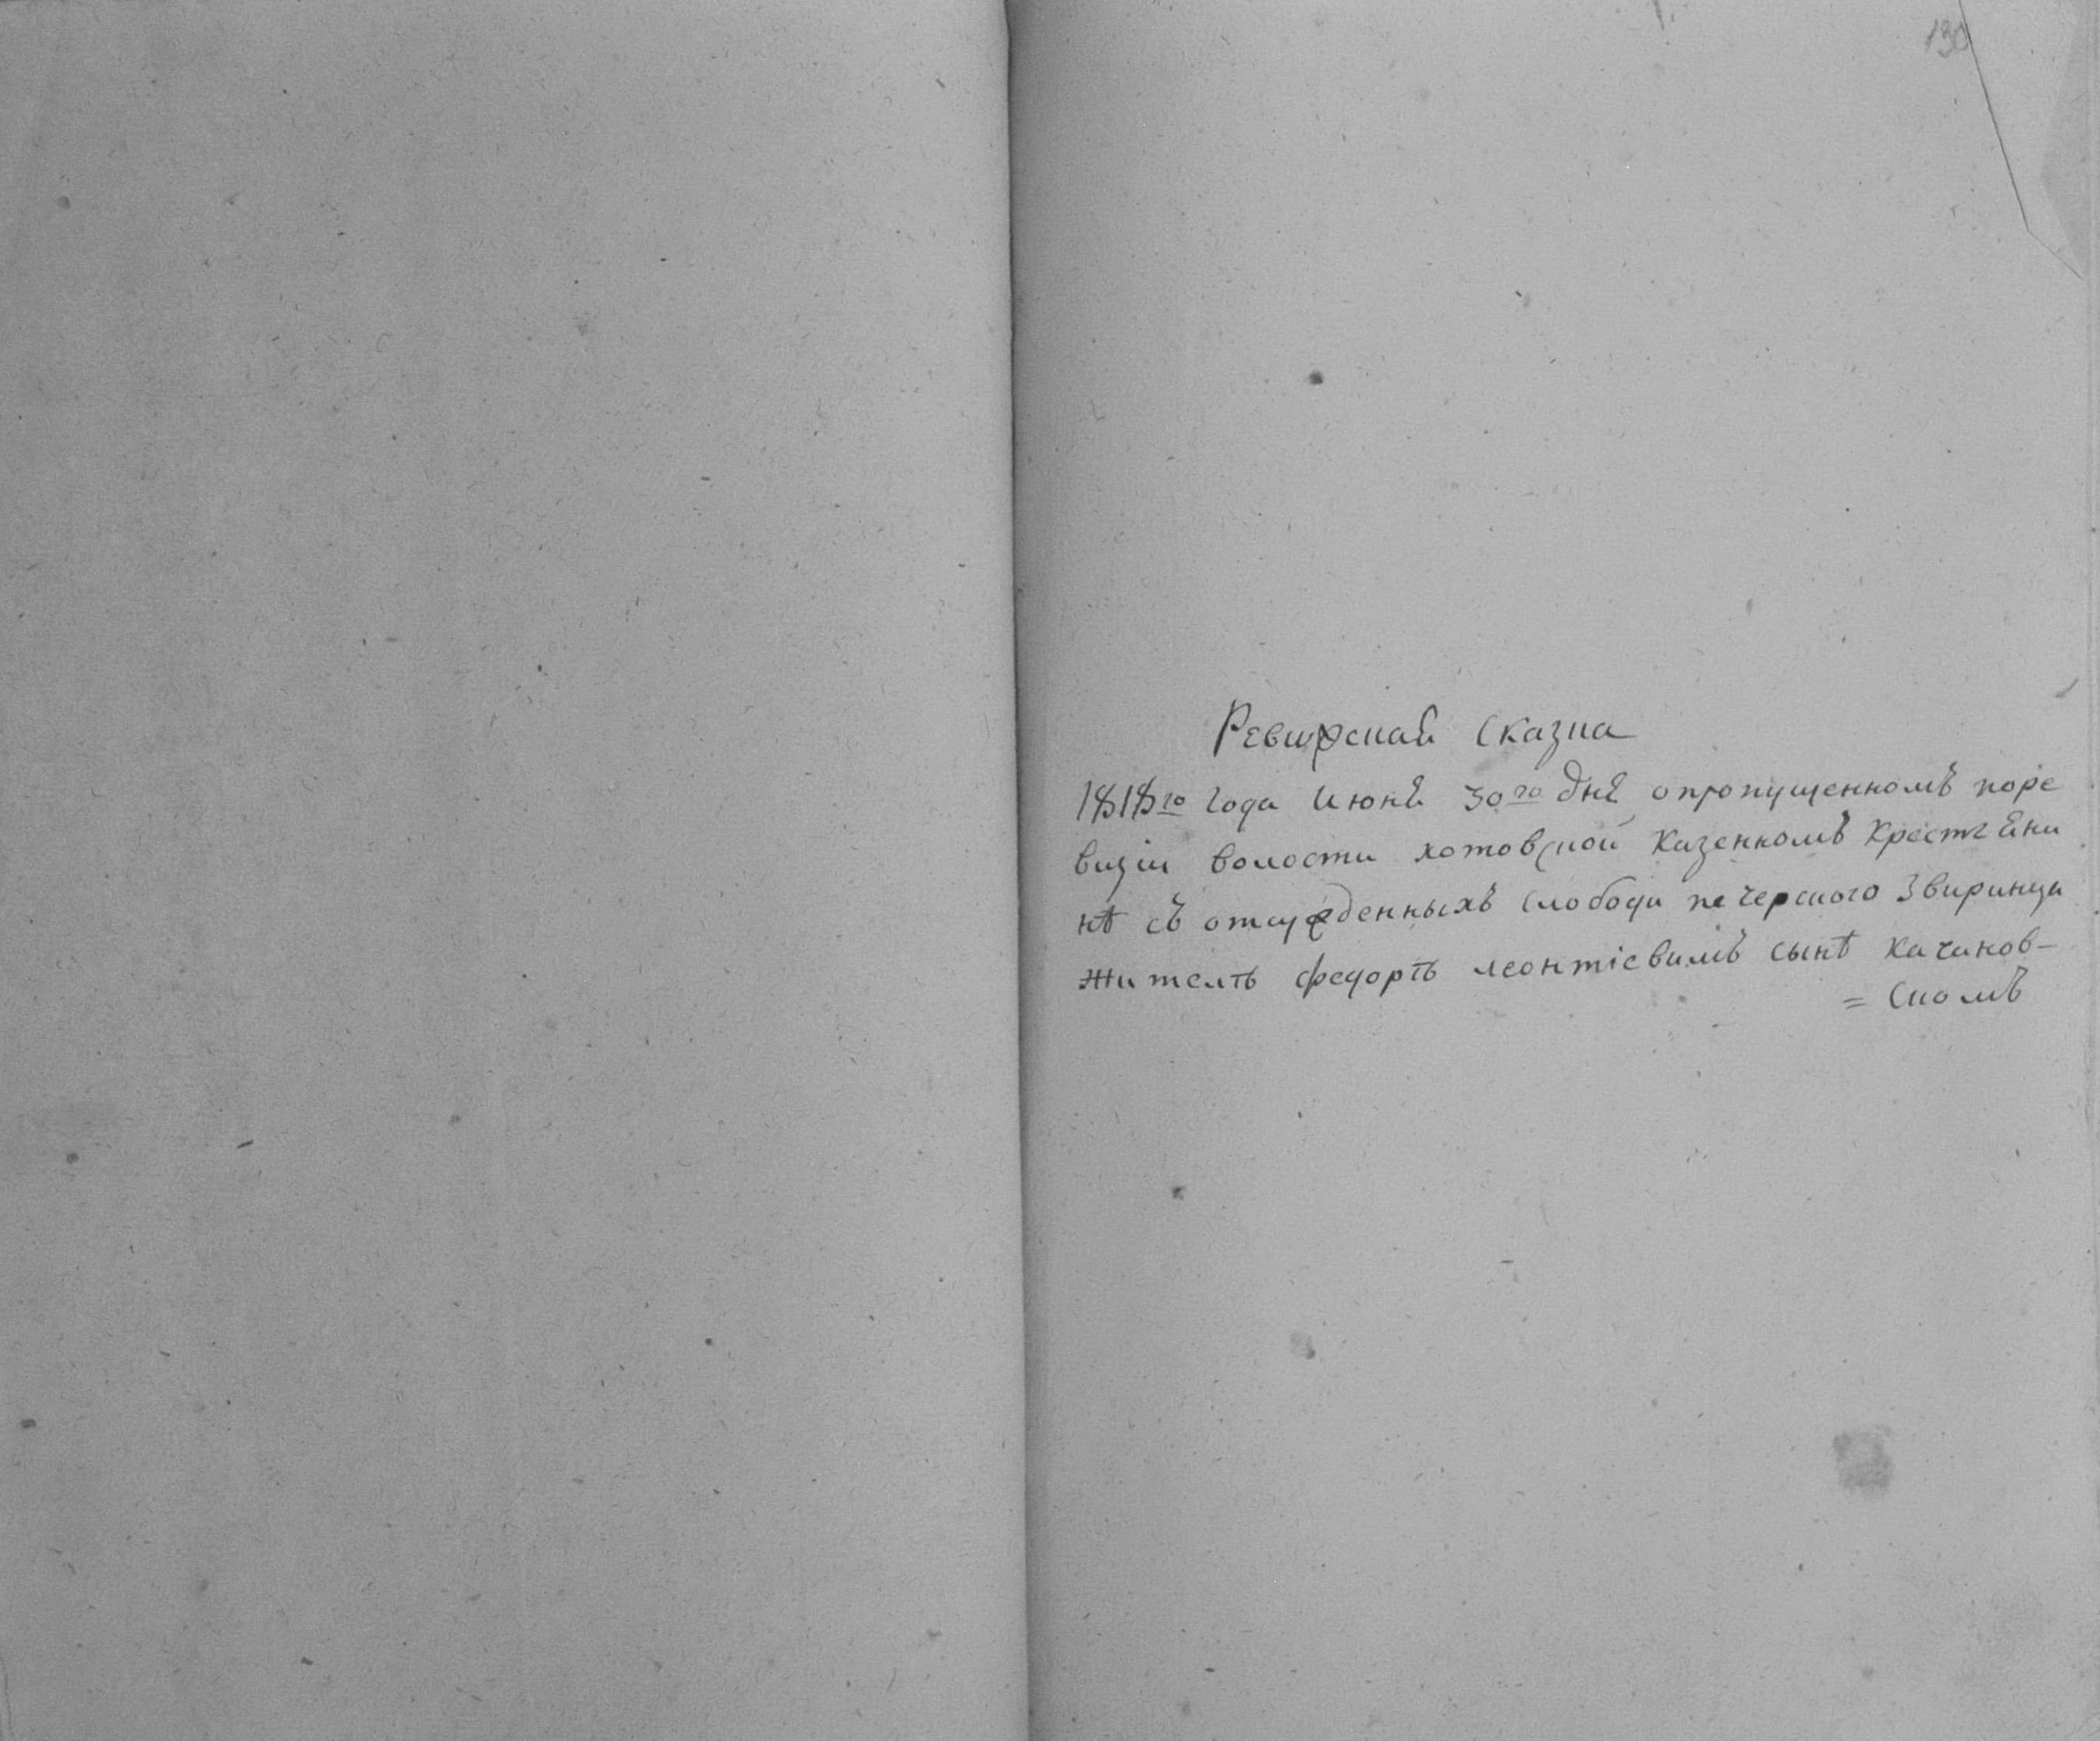 130
Ревизская Сказка
1818го Года Июня 30го дня опропущенномъ поре
визіи волости хотовской Казенномъ Крестьяни
нѣ съ отсужденныхъ слободи печерского Звиринца
жителѣ федорѣ леонтіевимъ сынѣ качанов-
= скомъ